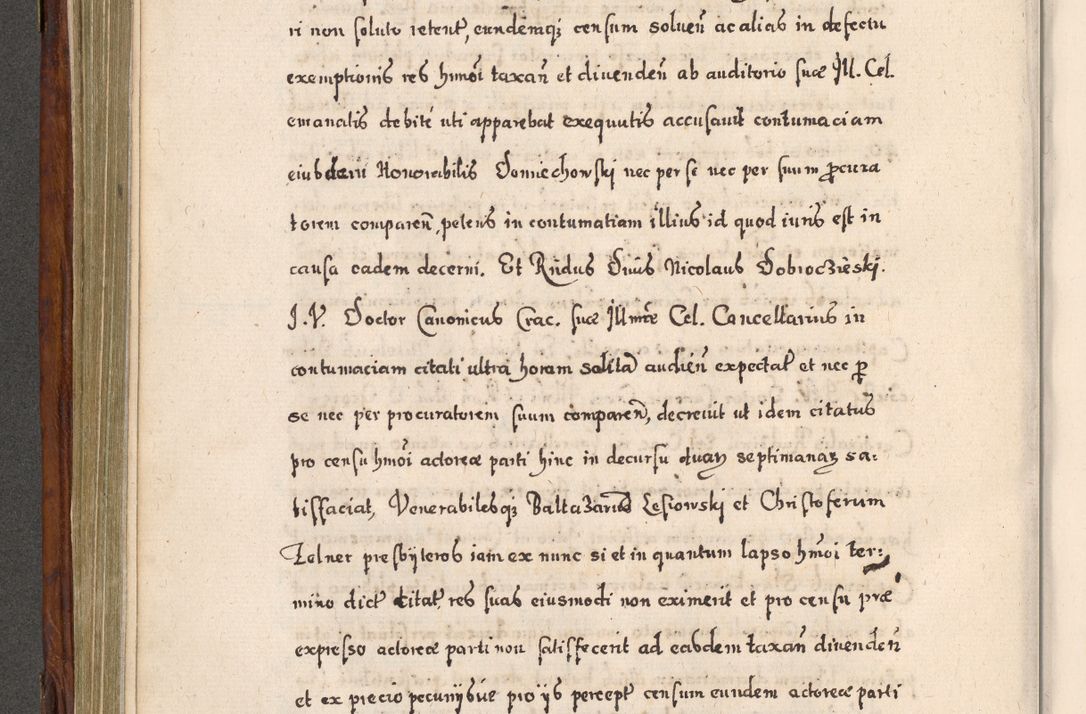 ri non soluto retent, eundemqȝ censum soluen̄ ac alias in defectu
exemptionis res hm̄oi taxan̄ et diuenden̄ ab auditorio suæ Ill. Cel.
emanatis debite uti apparebat exequutis accusauit contumaciam
eiusdem Honorabilis Domiechowski nec per se nec per suum ꝓcura
torem comparen̄, petens in contumatiam illius id quod iuris est in
causa eadem decerni. Et Rn̄dus Dn̄us Nicolaus Dobrocżieski.
I.V. Doctor Canonicus Crac. suæ Illmæ Cel. Cancellarius in
contumaciam citati ultra horam solita audien̄ expectat et nec ꝑ
se nec per procuratorem suum comparen̄, decreuit ut idem citatus
pro censu hm̄oi actoreæ parti hinc in decursu duaꝝ septimanaꝝ sa:
tisfaciat, Venerabilesqȝ Baltazarum Lesiowski et Christoferum
Zelner presbÿteros iam ex nunc si et in quantum lapso hm̄oi ter:
mino dict citat, res suas eiusmodi non eximerit et pro censu præ
expresso actoreæ parti non satisfecerit ad easdem taxan̄ diuenden̄
et ex precio pecunijsue pro ijs percept censum eundem actoreæ parti